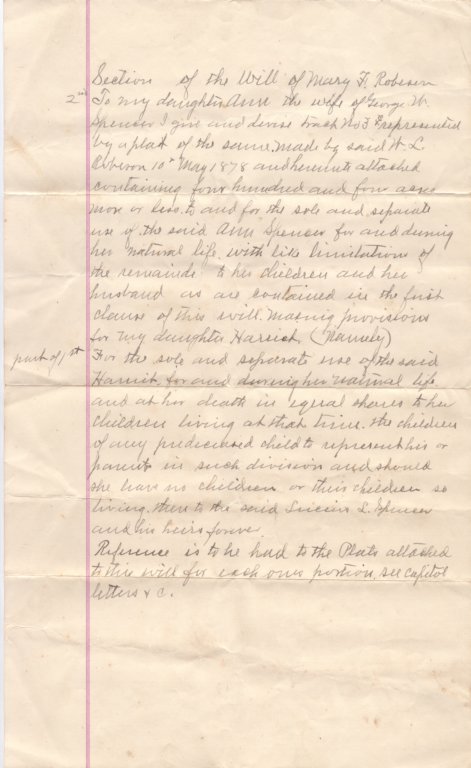 Section of the Will of Mary F. Roberson
2nd To my daughter Ann the wife of George W.
Spencer I give and devise track No 3 represented
by a plat of the same made by said W. L.
Roberson 10th May 1878 and hereunto attached
containing four hundred and four acres
more or less. to and for the sole and separate
use of the said Ann Spencer for and during
her natural life. with like limitations of
the remainde to her children and her
husband as are contained in the first
clause of this will. making provisions
for my daughter Harriet. (Namely)
part of 1st For the sole and seperate use of the said
Harriet, for and during her natural life
and at her death in equal shares to her
children living at that time. the children
of any predeceased child to represent his or
parents in such division and should
she have no children or their children so
living. then to the said Lucius L. Spencer
and his heirs forever
Reference is to be had to the Plats attached
to this will for each ones portion, see capitol
letters & c.